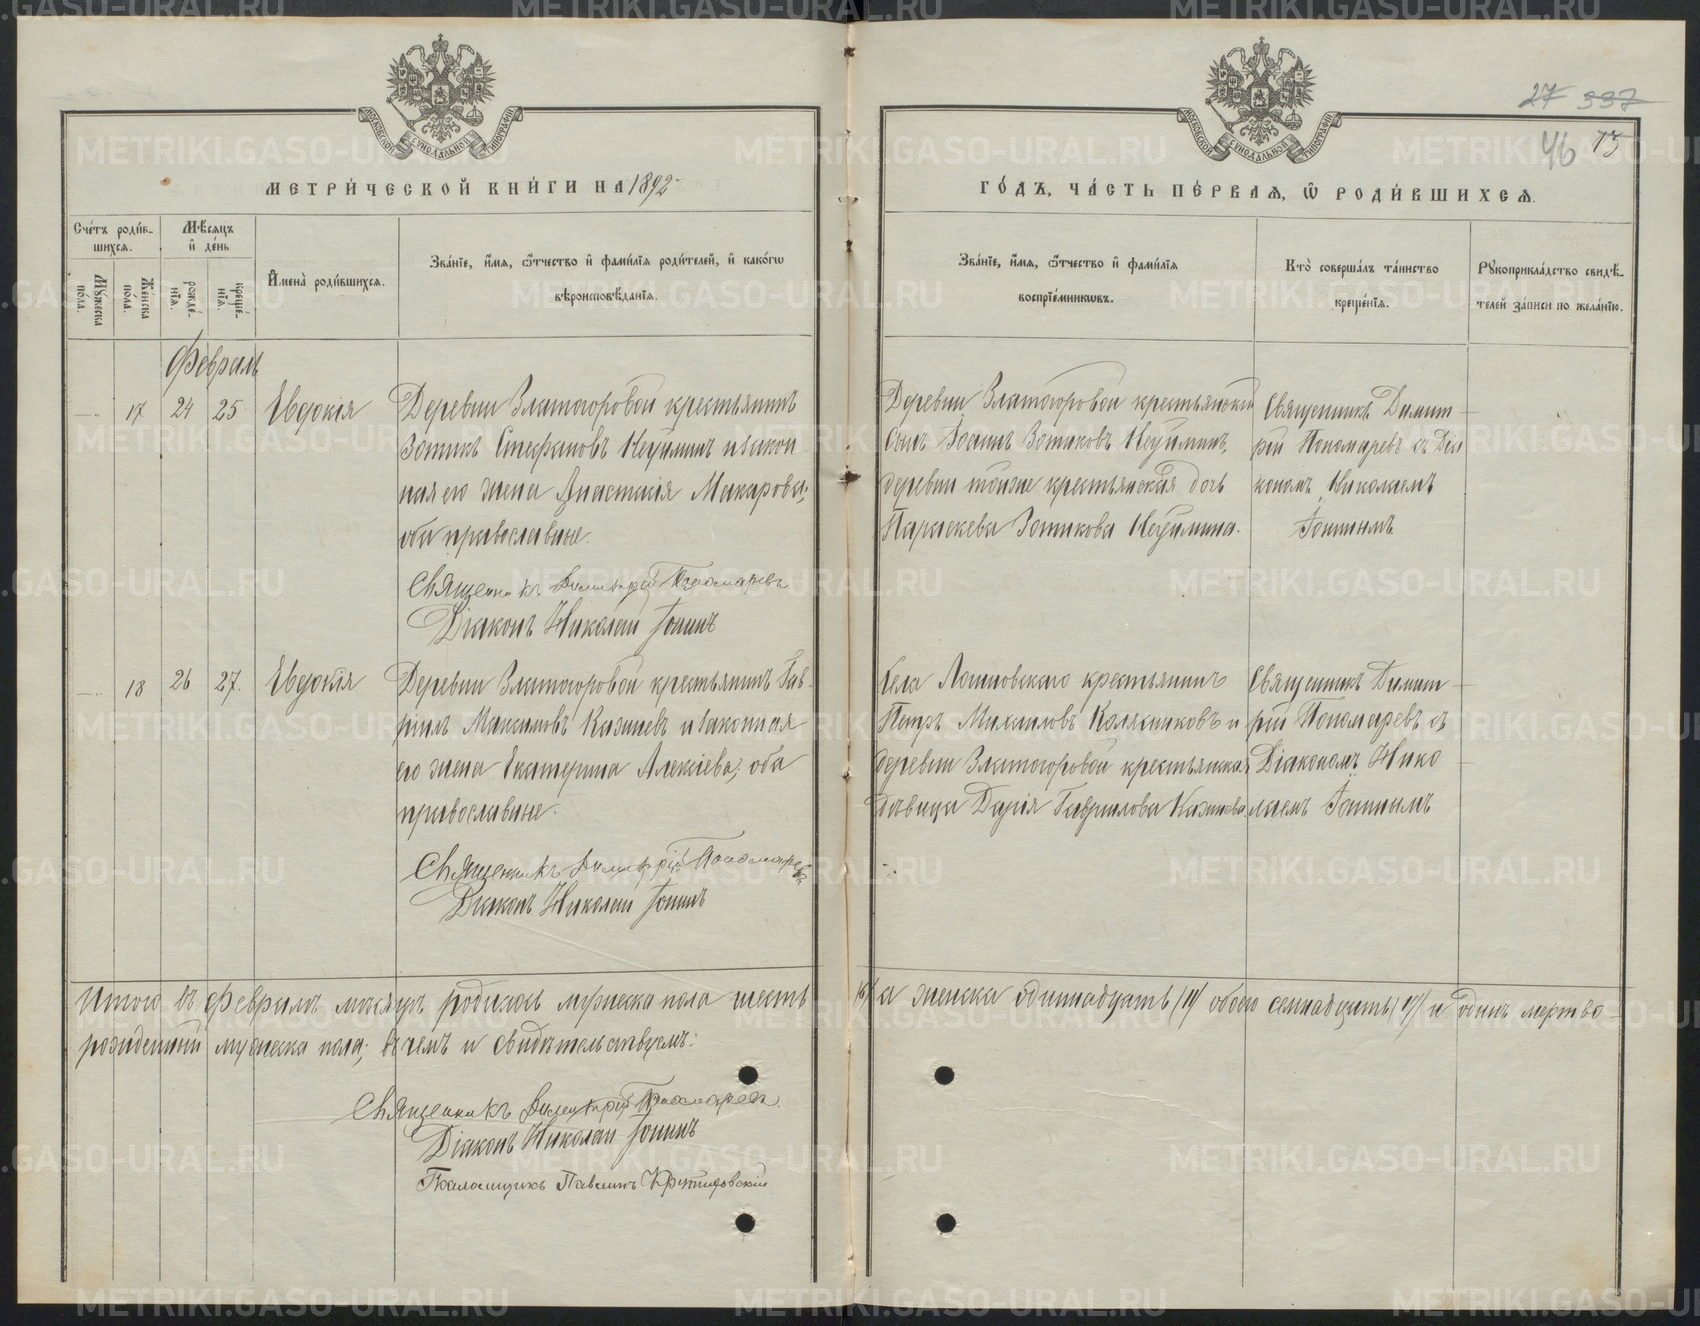 27 337
46 13
МОСКОВСКОЙ СѴНОДАЛЬНОЙ ТИПОГРАФІИ
МОСКОВСКОЙ СѴНОДАЛЬНОЙ ТИПОГРАФІИ
МЕТРИ́ЧЕСКОЙ КНИ́ГИ НА 1892
ГО́ДЪ, ЧА́СТЬ ПЕ́РВАѦ, Ѽ РОДИ́ВШИХСѦ.
Сче́тъ роди́вшихсѧ.
Мꙋжеска по́ла.
Же́нска по́ла.
Мѣ́сѧцъ и҆ де́нь
рожде́нїѧ.
креще́нїѧ.
И҆мена̀ роди́вшихсѧ.
Зва́нїе, и҆́мѧ, ѻ҆́тчество и҆ фами́лїѧ роди́телей, и҆ како́гѡ
вѣроисповѣ́данїѧ.
Зва́нїе, и҆́мѧ, ѻ҆́тчество и҆ фами́лїѧ
воспрїе́мникѡвъ.
Кто̀ соверша́лъ та́инство
креще́нїѧ.
Рꙋкоприкла́дство свидѣ́-
телей за́писи по жела́нїю.
Февраль
17 24 25 Евдокія
Деревни Златогоровой крестьянинъ
Зотикъ Стефановъ Неуйминъ и закон
ная его жена Анастасія Макарова;
оба православные.
Священникъ Димитрій Пономаревъ
Діаконъ Николай Іонинъ
Деревни Златогоровой крестьянскій
сынъ Іоаннъ Зотиковъ Неуйминъ,
деревни тойже крестьянская дочь
Параскева Зотикова Неуймина.
Священникъ Димит
рій Пономаревъ съ Діа
кономъ Николаемъ
Іонинымъ
18 26 27. Евдокія
Деревни Златогоровой крестьянинъ Гав-
риилъ Максимовъ Казанцевъ и законная
его жена Екатерина Алексіева; оба
православные.
Священникъ Димитрій Пономаревъ
Діаконъ Николай Іонинъ
Села крестьянинъ
Петръ Михаиловъ Колясниковъ и
деревни Златогоровой крестьянская
дѣвица Дарія Гавриилова
Священникъ Димит
рій Пономаревъ съ
Діакономъ Нико
лаемъ Іонинымъ
Итого въ Февралѣ мѣсяцѣ родилось мужеска пола шесть /6/ а женска одиннадцать /11/ обоего семнадцать /17/ и одинъ мертво-
рожденный мужеска пола; въ чемъ и свидѣтельствуемъ:
Священникъ Димитрій Пономаревъ.
Діаконъ Николай Іонинъ
Псаломщикъ Павлинъ
METRIKI.GASO-URAL.RU